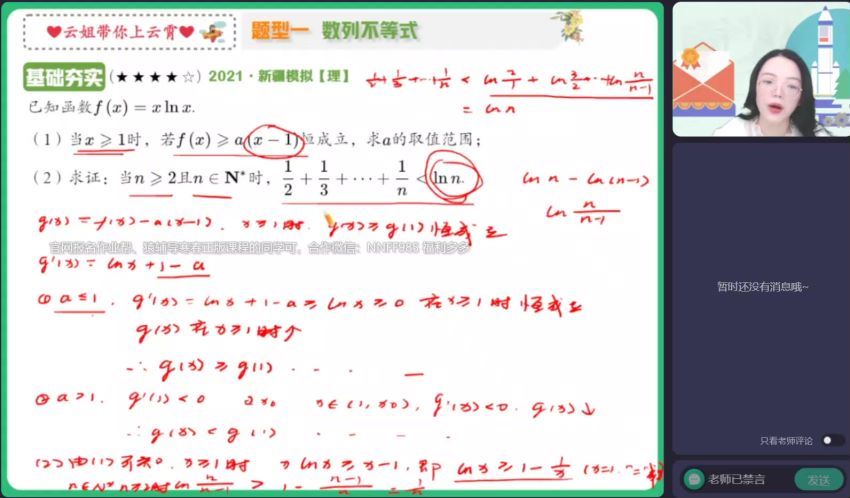 ❤云姐带你上云霄❤
题型一 数列不等式
基础夯实 (★★★★☆) 2021·新疆模拟【理】
1/2+1/3+…+1/n < ln 2/1 + ln 3/2 +…+ ln n/(n-1)
= ln n
已知函数f(x)=xlnx.
(1)当x≥1时,若f(x)≥a(x-1)恒成立,求a的取值范围;
(2)求证:当n≥2且n∈N*时,1/2+1/3+⋯+1/n<lnn.
ln n - ln(n-1)
ln n/(n-1)
g(x)=f(x)-a(x-1). x≥1时. g(x)≥g(1)恒成立
官网报名作业帮、猿辅导寒春正版课程的同学可,合作微信:NNFF986 福利多多
g'(x)=lnx+1-a
① a≤1. g'(x)=lnx+1-a≥lnx≥0 在x≥1时恒成立
g(x)在x≥1时↑
∴ g(x)≥g(1)
② a>1. g'(1)<0 x∈(1,x0), g'(x)<0. g(x)↓
∴ g(x)<g(1)
(2)由(1)可知. x≥1时 xlnx≥x-1, 即 lnx≥1-1/x (x=1."="
n∈N* n≥2时 ln n/(n-1) > 1-(n-1)/n = 1/n
暂时还没有消息哦~
只看老师评论
老师已禁言
发送